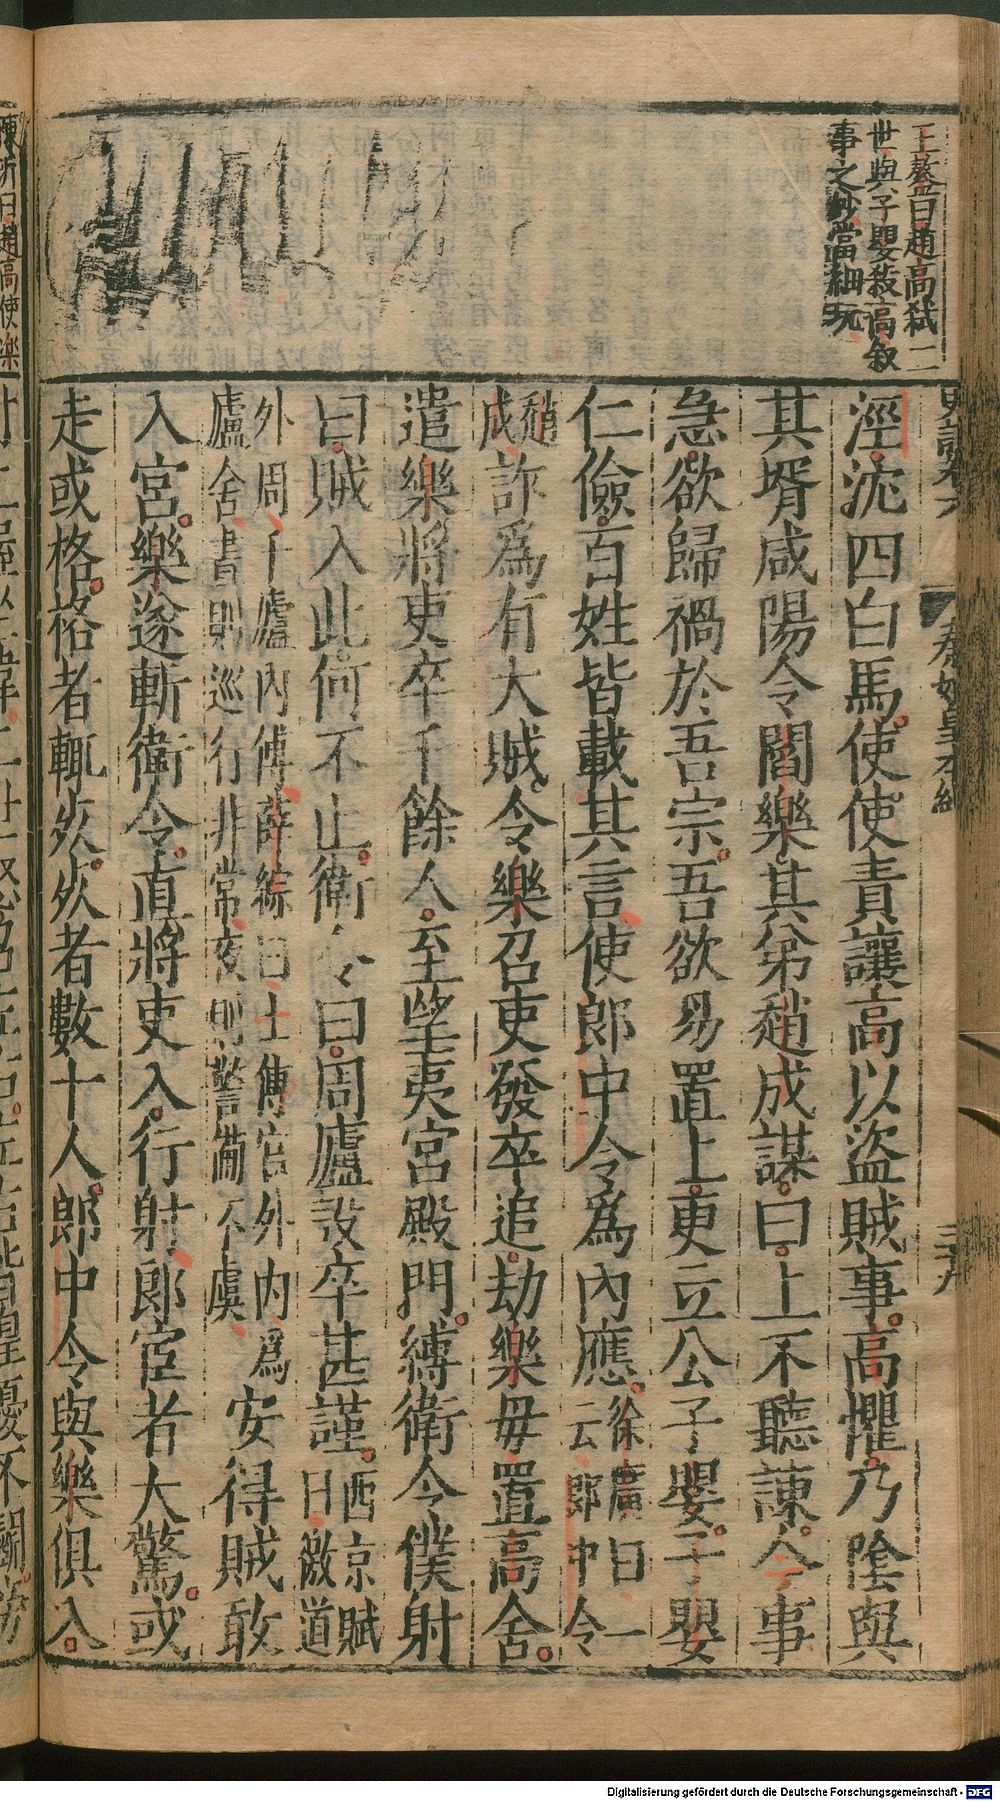 王鏊曰趙高弑二
世與子嬰殺高叙
事之妙當細玩
史記卷六
秦始皇本紀
三十九
涇沈四白馬使使責讓高以盜賊事高懼乃陰與
其壻咸陽令閻樂其弟趙成謀曰上不聽諫今事
急欲歸禍於吾宗吾欲易置上更立公子嬰子嬰
仁儉百姓皆載其言使郎中令爲內應
徐廣曰一
云郎中令
趙
成
詐爲有大賊令樂召吏發卒追劫樂毋置高舍
遣樂將吏卒千餘人至望夷宮殿門縛衛令僕射
曰賊入此何不止衛令曰周廬設卒甚謹
西京賦
曰徼道
外周千廬內傅薛綜曰士傅宮外內爲
廬舍晝則巡行非常夜則警備不虞
安得賊敢
入宮樂遂斬衛令直將吏入行射郎宦者大驚或
走或格格者輒死死者數十人郎中令與樂俱入
陳沂曰趙高使樂
Digitalisierung gefördert durch die Deutsche Forschungsgemeinschaft - DFG